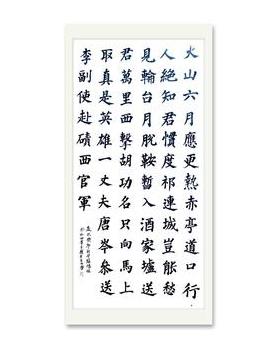 火山六月應更熱赤亭道口行
人絕知君慣度祁連城豈能愁
見輪台月脫鞍暫入酒家壚送
君萬里西擊胡功名只向馬上
取真是英雄一丈夫唐岑參送
李副使赴磧西官軍